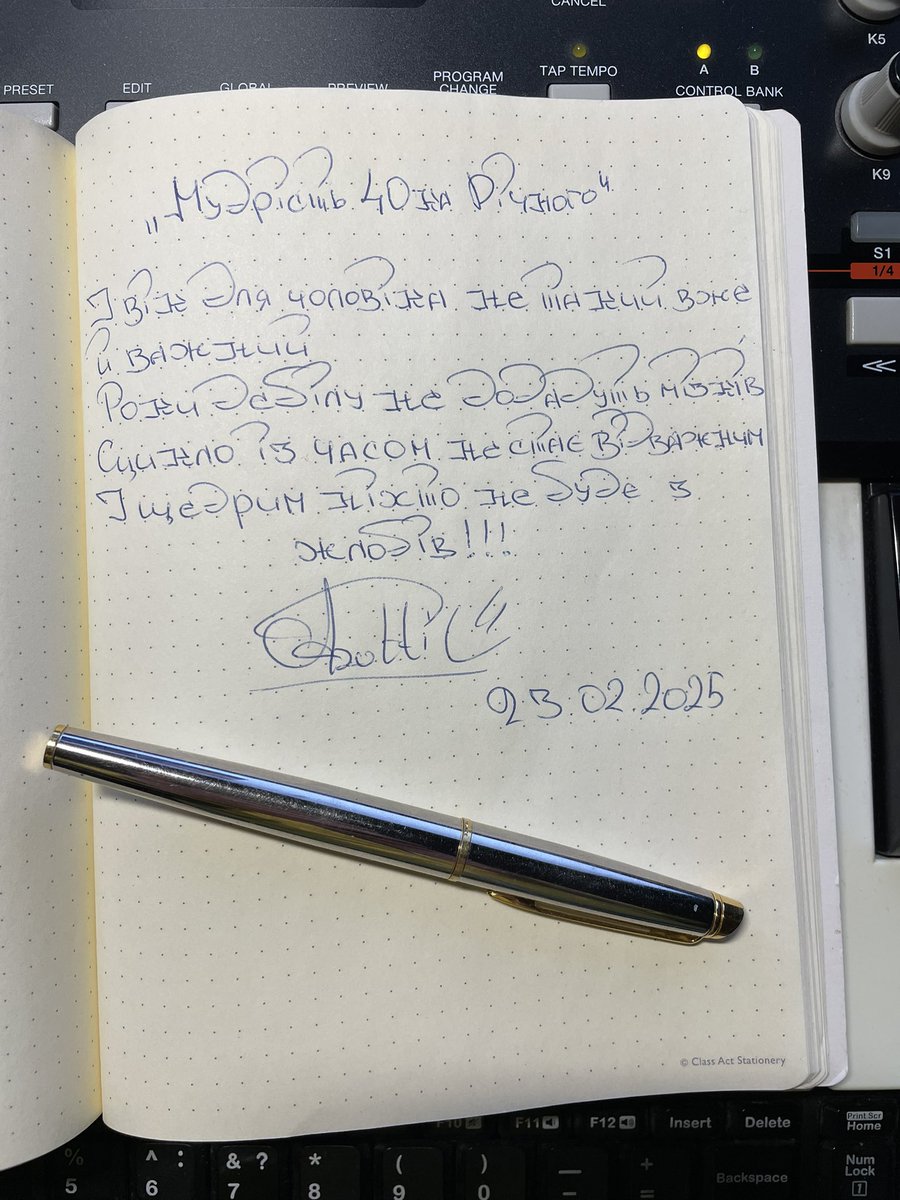 CANCEL
K5
TAP TEMPO
A
B
PRESET
EDIT
GLOBAL
PREVIEW
PROGRAM
CHANGE
CONTROL BANK
K9
S1
1/4
„Мудрість 40ка Річного“
І вік для чоловіка не такий вже
й важкий
Роки дебілу не додадуть мізків
Сцикло із часом не стає відважним
І щедрим ніхто не буде з
жлобів!!!
23.02.2025
© Class Act Stationery
F10
F11
F12
Insert
Delete
Print Scr
Home
%
5
^ :
6
& ?
7
*
8
(
9
)
0
_
-
+
=
Backspace
Num
Lock
1